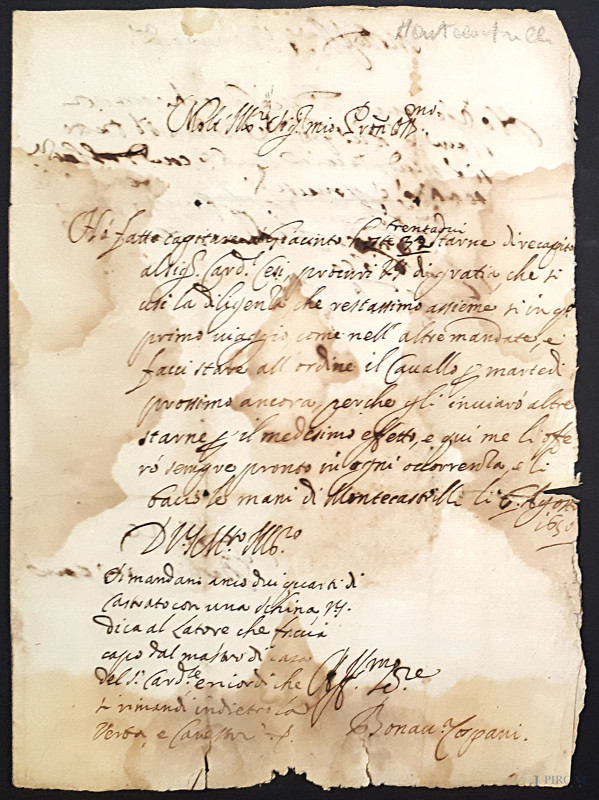 Montecastrilli
Molt' Ill.re Sig.r mio Pron Oss.mo
Hò fatto capitare a Giacinto trentadui
32 starne di recapito
al Sig.r Card.l Cesi, procuri VS di gratia, che si
usi la diligenza che restassimo assieme si in q.o
primo viaggio come nell' altre mandate, e
facci stare all' ordine il Cavallo p martedi
prossimo ancora, perche gli inviarò altre
starne p il medesimo effetto, e qui me li offe
rò sempre pronto in ogni occorrenza, e li
bacio le mani di Montecastrilli li 6
1650
D VS Molto Ill.re
Si mandano anco dui quarti di
Castrato con una schina, VS.
dica al Latore che faccia
capo dal mastro di casa
del S.r Card.le e ricordi che
Li rimandi indietro la
e
Aff.mo Se.re
Bonau.a Cospani.